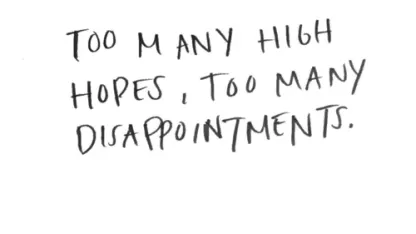 TOO MANY HIGH
HOPES, TOO MANY
DISAPPOINTMENTS.